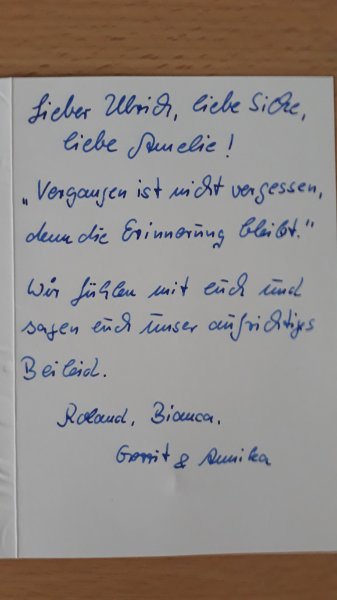 Lieber Ulrich, liebe Silke,
liebe Amelie!
„Vergangen ist nicht vergessen,
denn die Erinnerung bleibt."
Wir fühlen mit euch und
sagen euch unser aufrichtiges
Beileid.
Roland, Bianca,
Gerrit & Annika